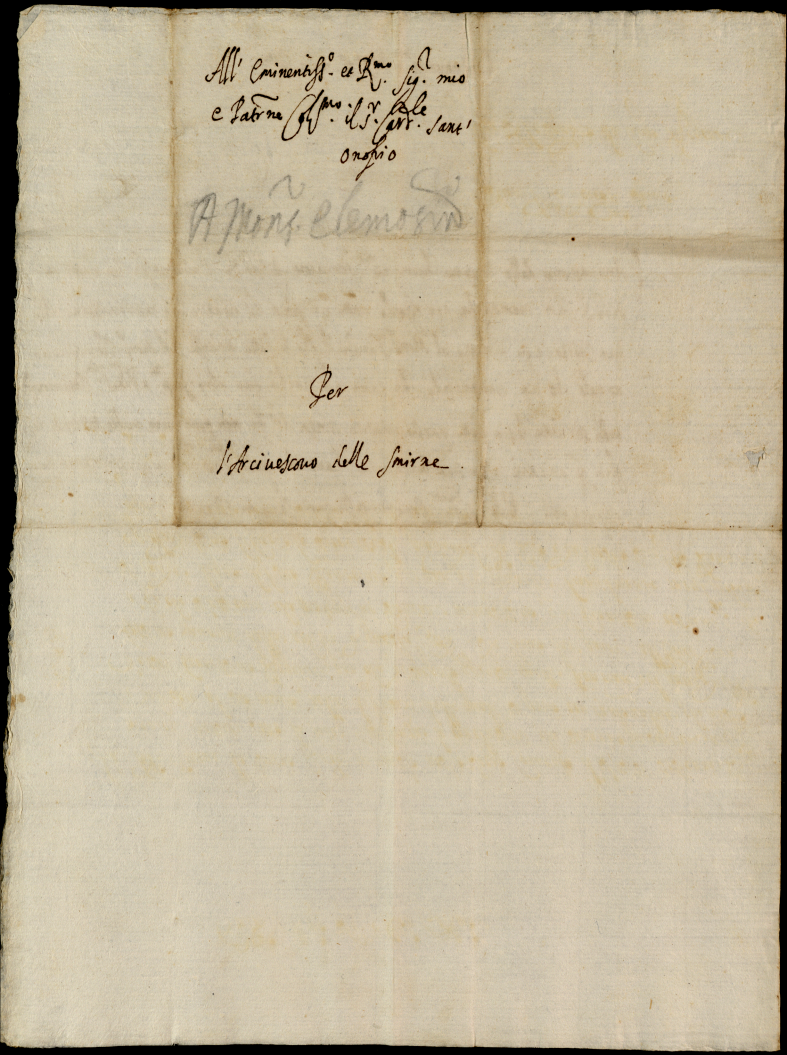 All' Eminentiss.º et R.mo sig.r mio
e Patrne Col.mo il S.r Car.le Sant'
Onofrio
A Mons.r Elemosin.
Per
l'Arciuescouo delle Smirne